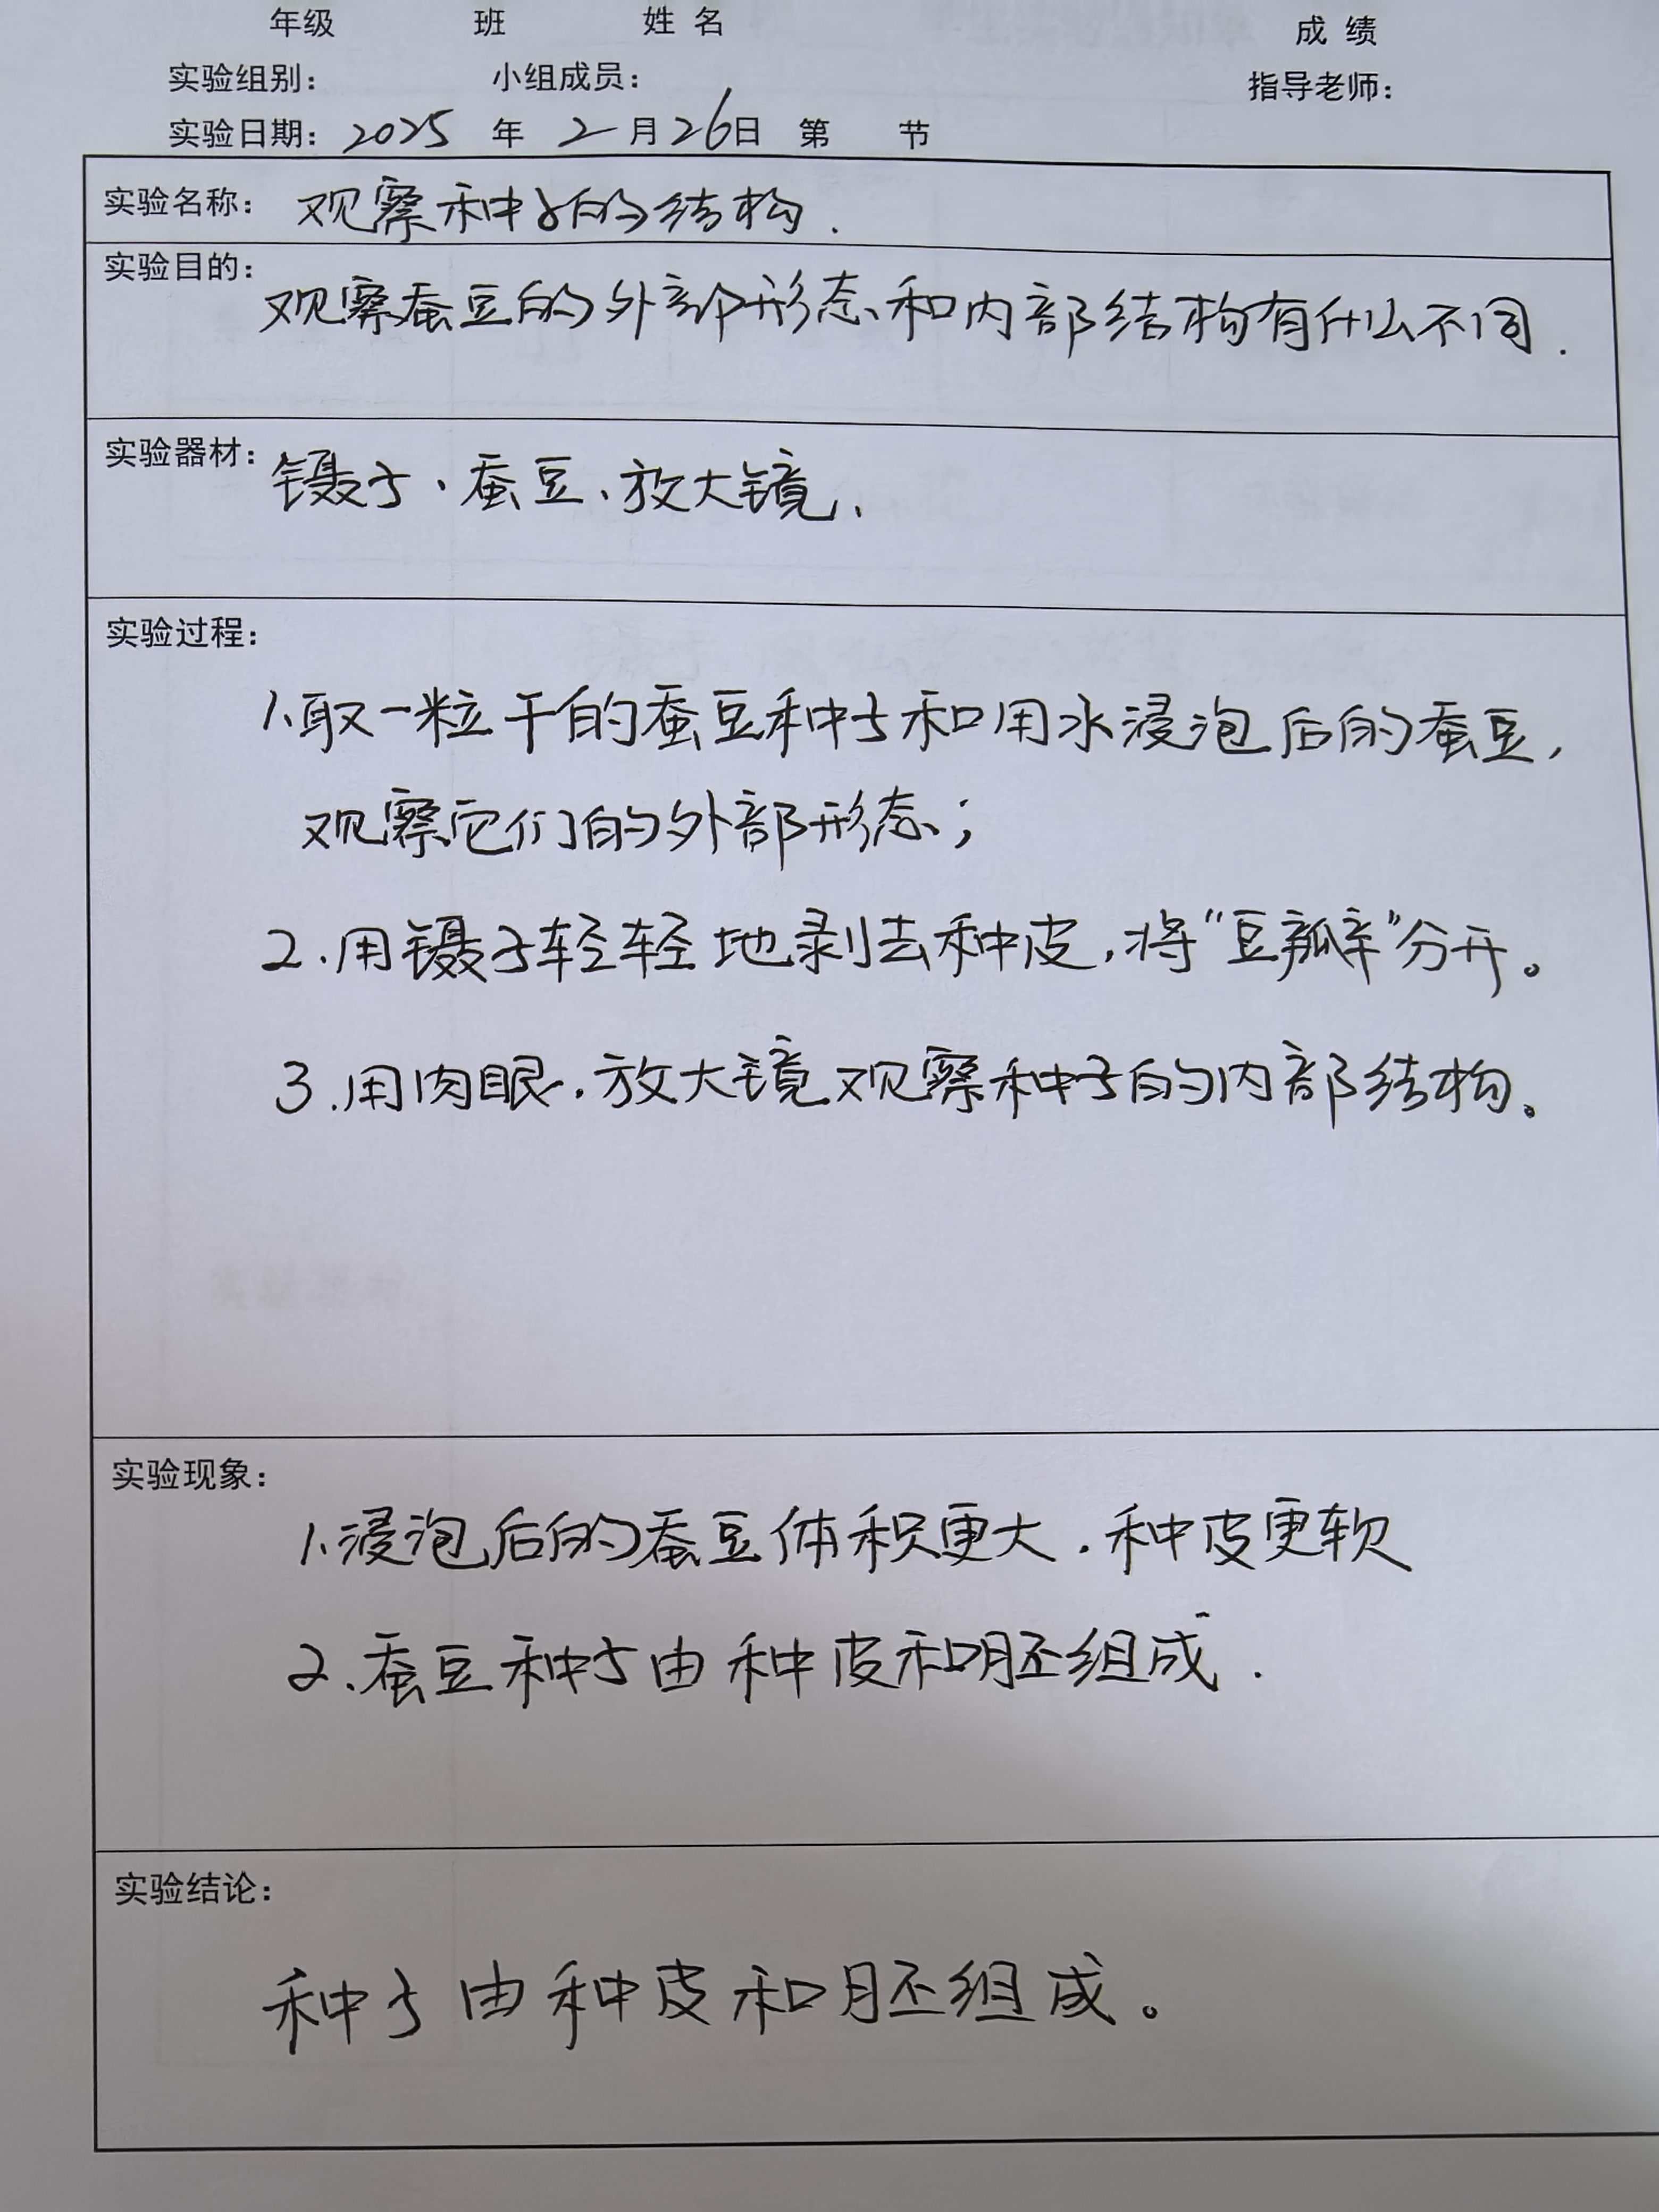 年级 班 姓 名 成 绩
实验组别： 小组成员： 指导老师：
实验日期：2025 年 2 月 26日 第 节
实验名称：观察种子的结构.
实验目的：
观察蚕豆的外部形态和内部结构有什么不同.
实验器材：镊子、蚕豆、放大镜、
实验过程：
1、取一粒干的蚕豆种子和用水浸泡后的蚕豆，
观察它们的外部形态；
2.用镊子轻轻地剥去种皮，将“豆瓣”分开。
3.用肉眼.放大镜观察种子的内部结构。
实验现象：
1、浸泡后的蚕豆体积更大.种皮更软
2、蚕豆种子由种皮和胚组成.
实验结论：
种子由种皮和胚组成。